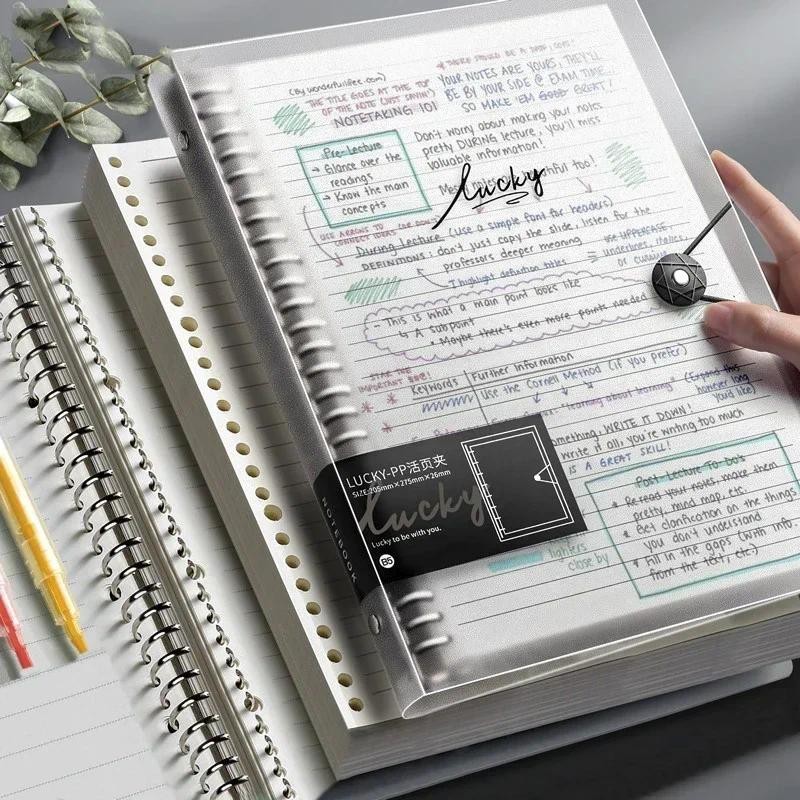 (By wonderfullifee.com)
THE TITLE GOES AT THE TOP
OF THE NOTE (JUST SAYIN')
NOTETAKING 101
* THERE SHOULD BE A DATE, TOO!
YOUR NOTES ARE YOURS, THEY'LL
BE BY YOUR SIDE @ EXAM TIME
SO MAKE 'EM GOOD GREAT!
Pre-Lecture
→ Glance over the
readings
→ Know the main
concepts
Don't worry about making your notes
pretty DURING lecture, you'll miss
valuable information!
too!
lucky
USE ARROWS TO
CONNECT IDEAS
During Lecture (use a simple font for headers)
DEFINITIONS: don't just copy the slide, listen for the
professors deeper meaning
highlight definition titles
= use UPPERCASE,
underlines, italics
or
- This is what a main point looks like
↳ A subpoint
* Maybe there's even more points needed
IMPORTANT
Keywords
Further Information
Use the Cornell Method (if you prefer)
"learning about learning"
(Expand this
however long
you'd like)
WRITE IT DOWN!
write it all, you're writing too much
IS A GREAT SKILL!
LUCKY-PP活页夹
SIZE:205mm×275mm×26mm
lucky
Lucky to be with you.
B5
NOTEBOOK
Post-Lecture To-Do's
* Re-read your notes, make them
pretty, mind map, etc.
* Get clarification on the things
you don't understand
* Fill in the gaps (with info.
from the text, etc.)
close by